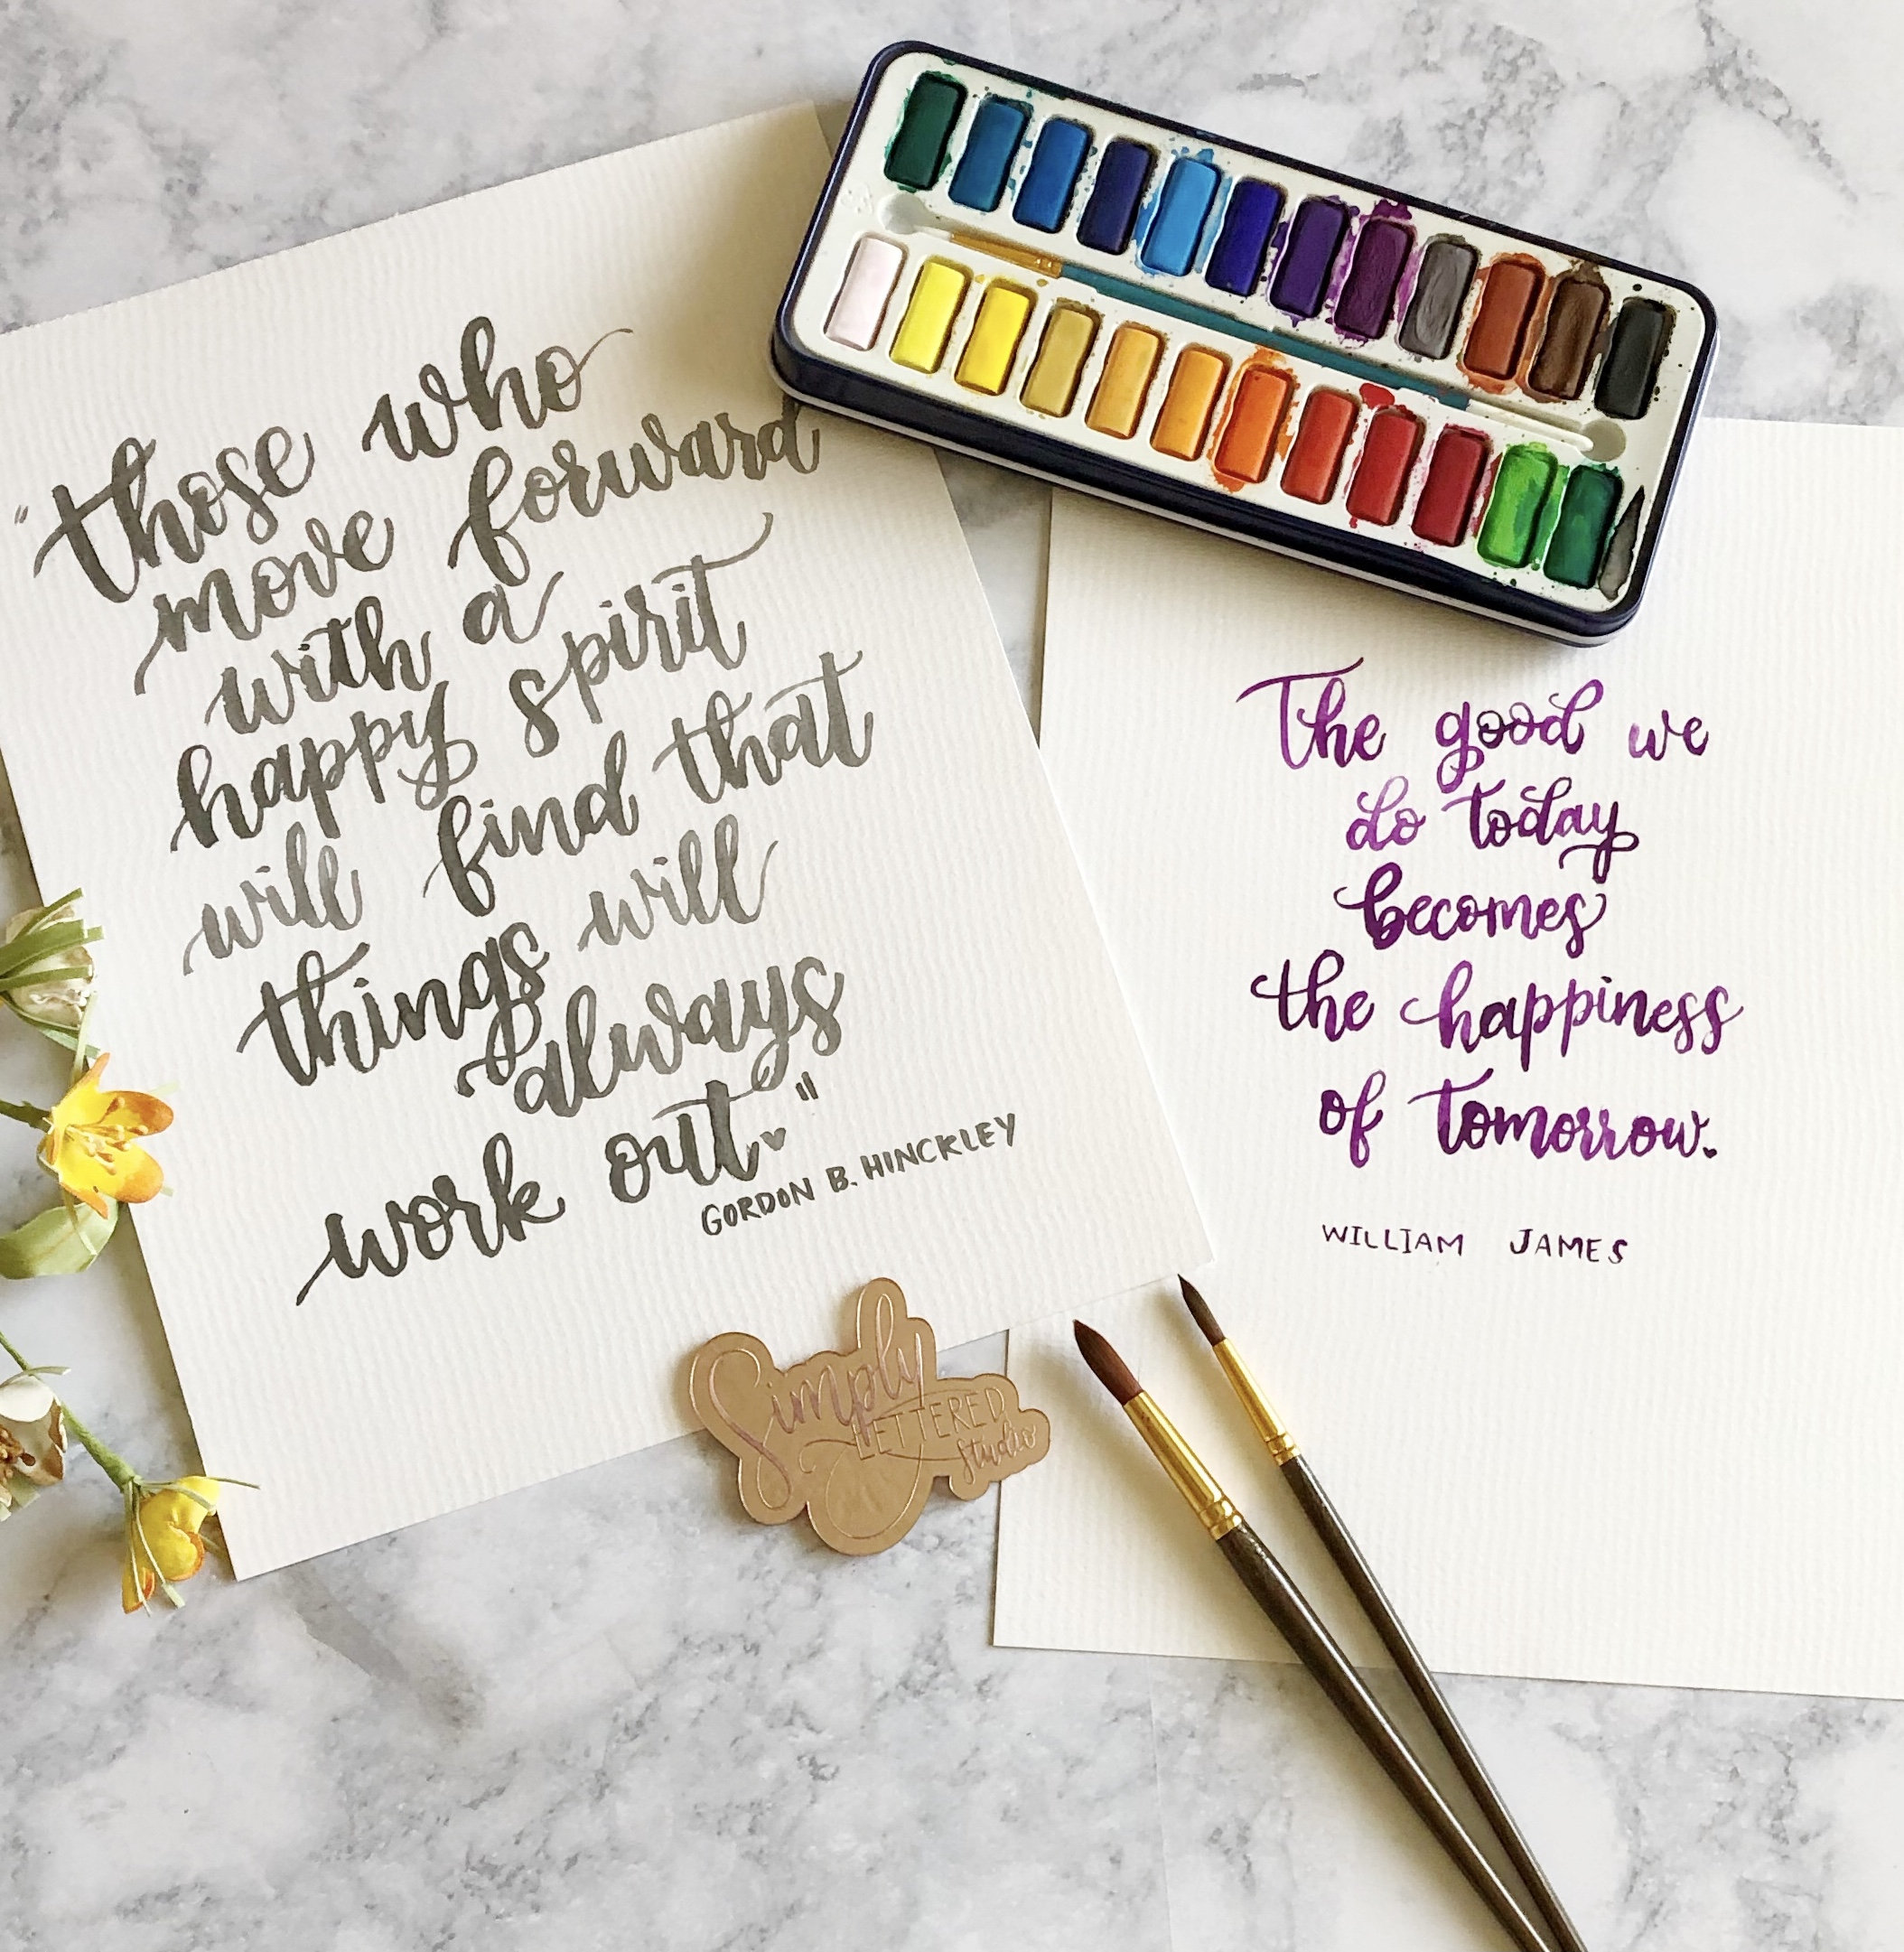 "those who
move forward
with a
happy spirit
will find that
things will
always
work out."
GORDON B. HINCKLEY
The good we
do today
becomes
the happiness
of tomorrow.
WILLIAM JAMES
Simply
LETTERED
Studio